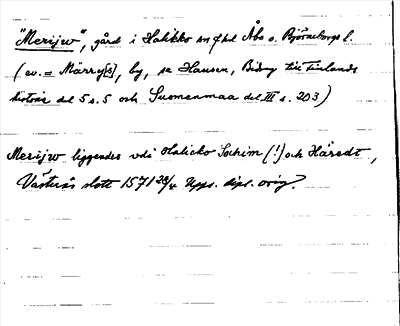 "Merijw", gård i Halikko snfhd Åbo o. Björneborgs l.
(ev. = Märry[s], by, se Hausen, Bidrag till Finlands
historia del 5 s. 5 och Suomenmaa del III s. 203)
Merijw liggendes vdi Halicko Sochim (!) och Häredt,
Västerås slott 1571 28/4 Upps. dipl. orig.